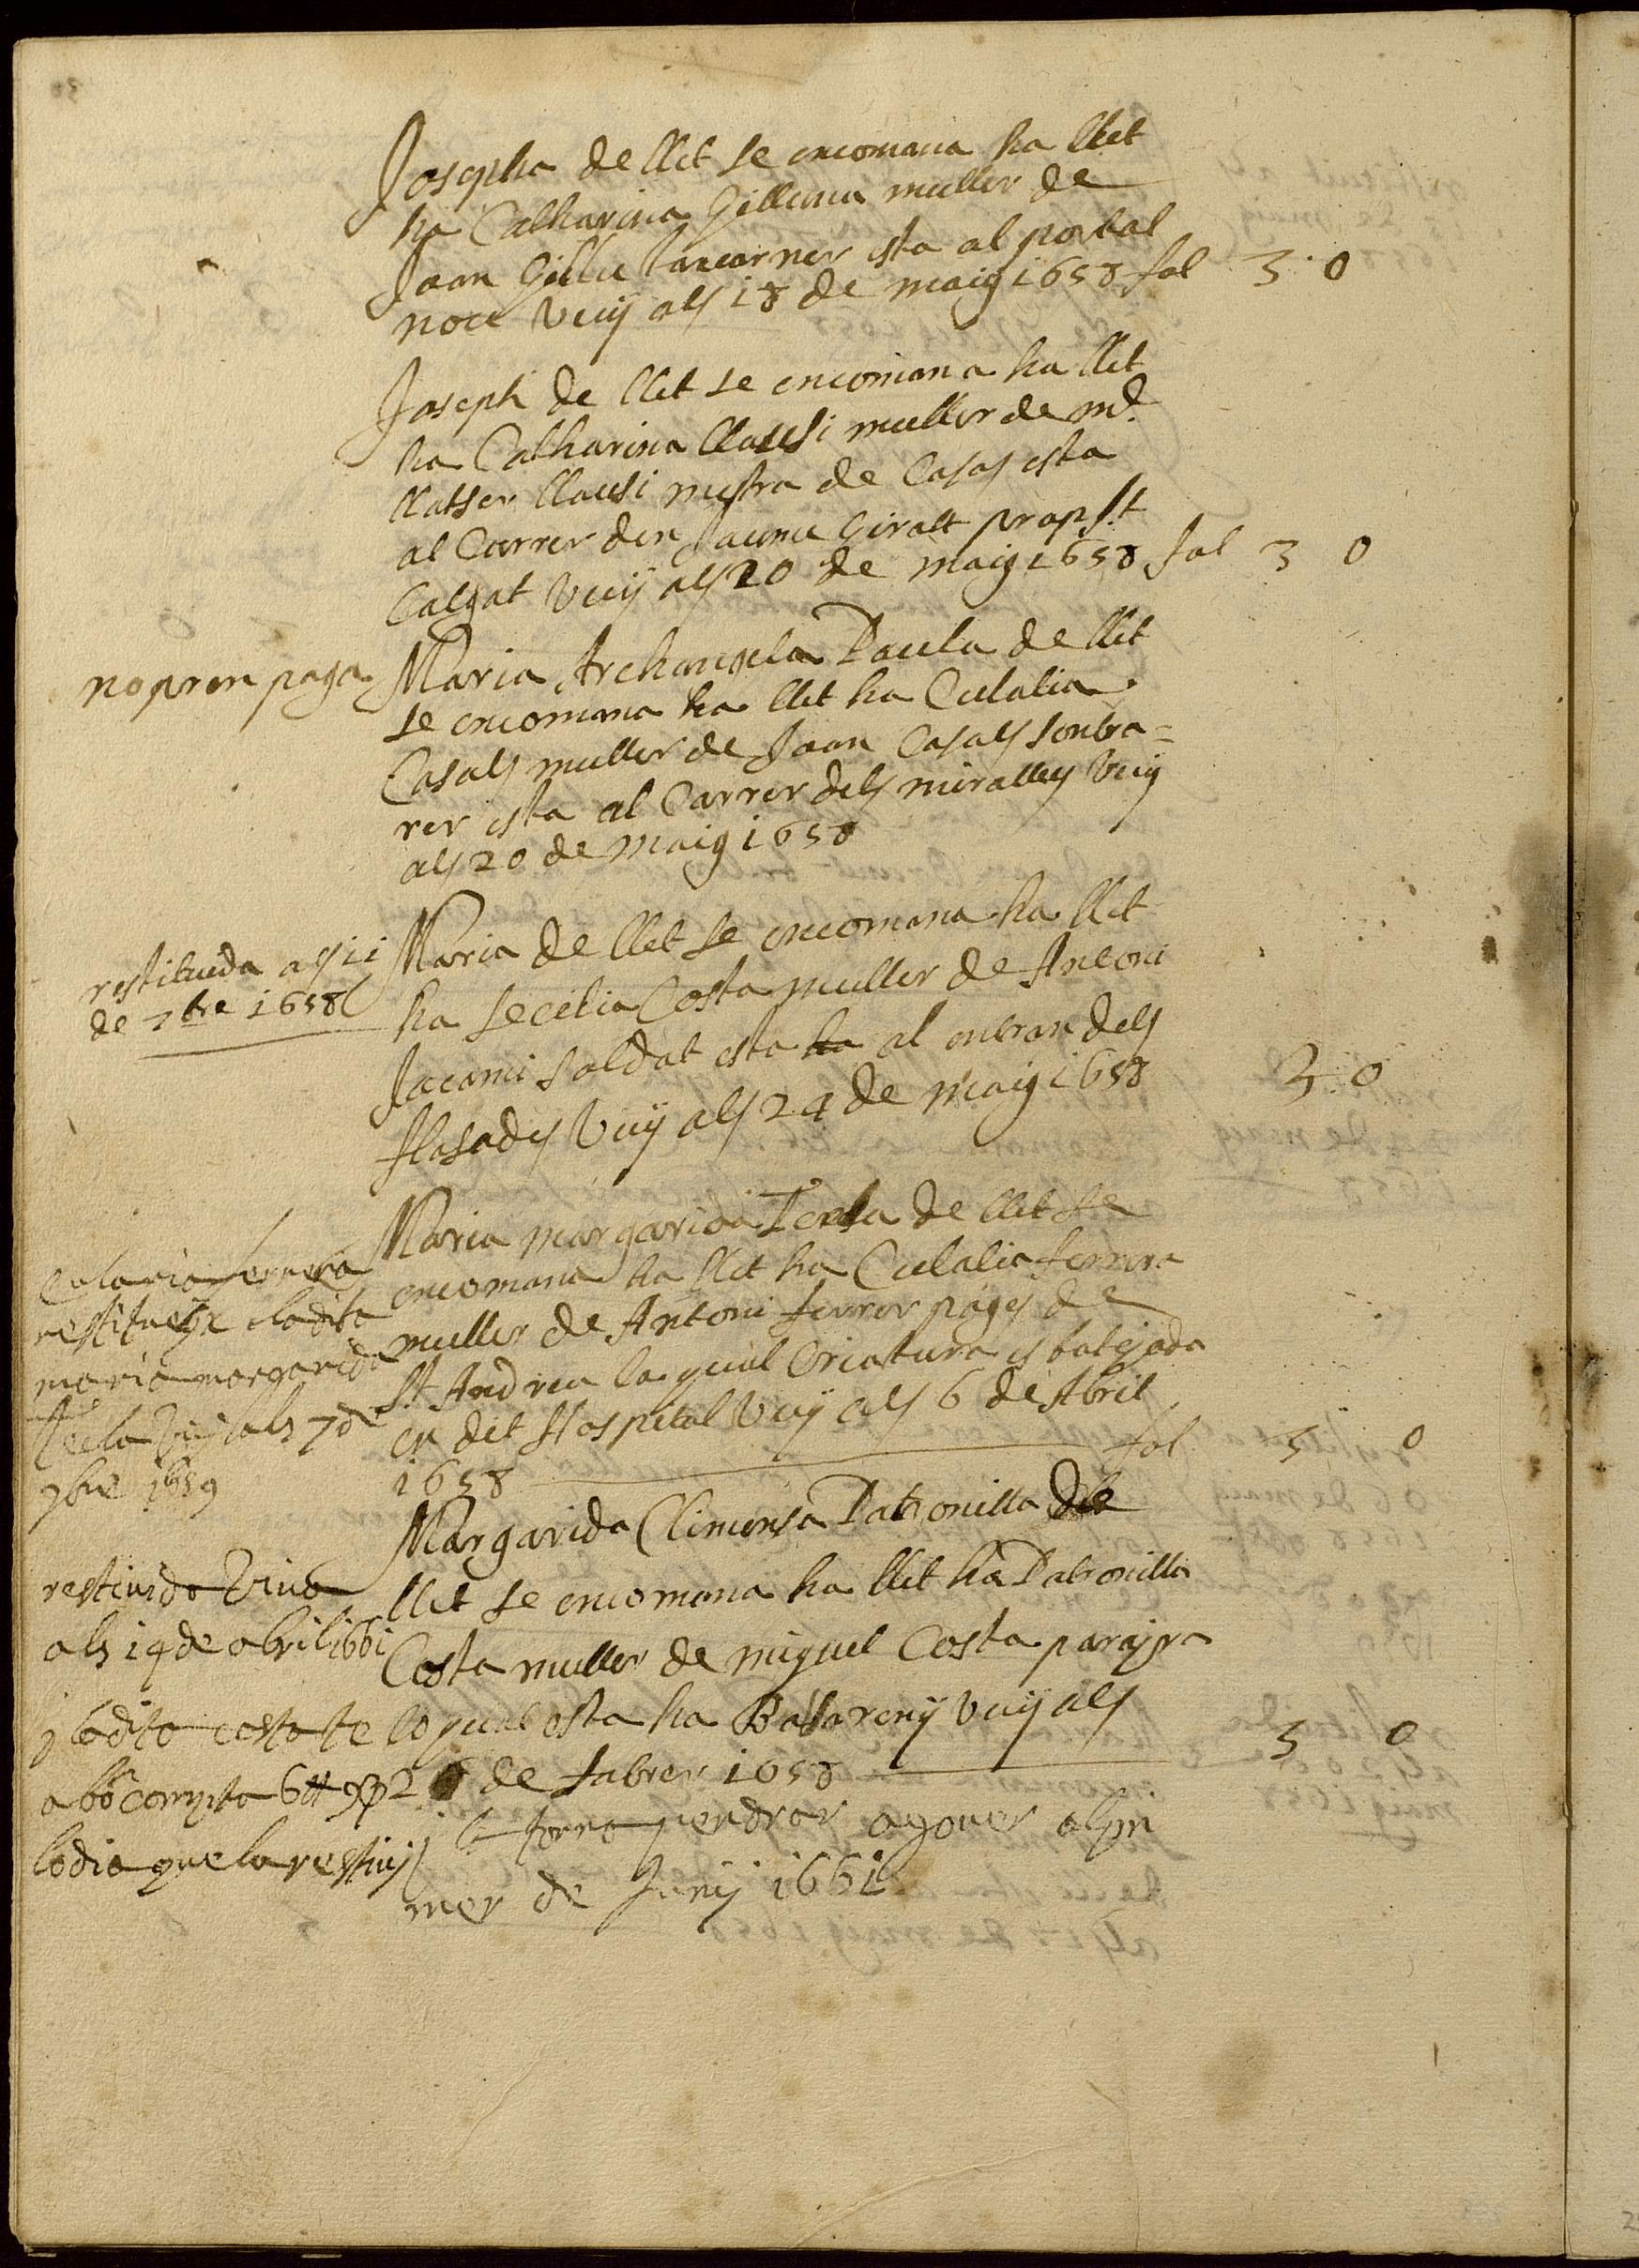 Josepha de llet se encomana ha llet
ha Catharina Gillema muller de
Joan Gille taverner esta al portal
nou vuy als 18 de maig 1658 fol 3 0
Joseph de llet se encomana ha llet
ha Catharina llausi muller de md.
llatser llausi mestra de Casas esta
al Carrer den Jaume Giralt prop St
Calgat vuy als 20 de maig 1658 fol 3 0
no pren paga
Maria Archangela Paula de llet
se encomana ha llet ha Eulalia
Casals muller de Joan Casals sonbra=
rer esta al Carrer dels mirallers vuy
als 20 de maig 1658
restituida als 11
de 7bre 1658
Maria de llet se encomana ha llet
ha Secilia Costa muller de Antoni
Jacomi soldat esta ha al entran dels
flasades vuy als 24 de maig 1658 3 0
Eularia ferrera
restitueix la dita
maria margarida
Tecla vuy als 7 de
9bre 1659
Maria margarida Tecla de llet se
encomana ha llet ha Eulalia ferrera
muller de Antoni ferrer pages de
St Andreu la qual Criatura es batejada
en dit Hospital vuy als 6 de Abril
1658 fol 3 0
restiuida viva
als 14 de abril 1661
y la dita costa te
a bo compta 6 ₶
lo dia que la restituy
Margarida Climensa Patronilla de
llet se encomana ha llet ha Patronilla
Costa muller de miquel Costa parayre
lo qual esta ha Balsareny vuy als
de fabrer 1658 3 0
la torna pendrer al pri
mer de Juny 1661